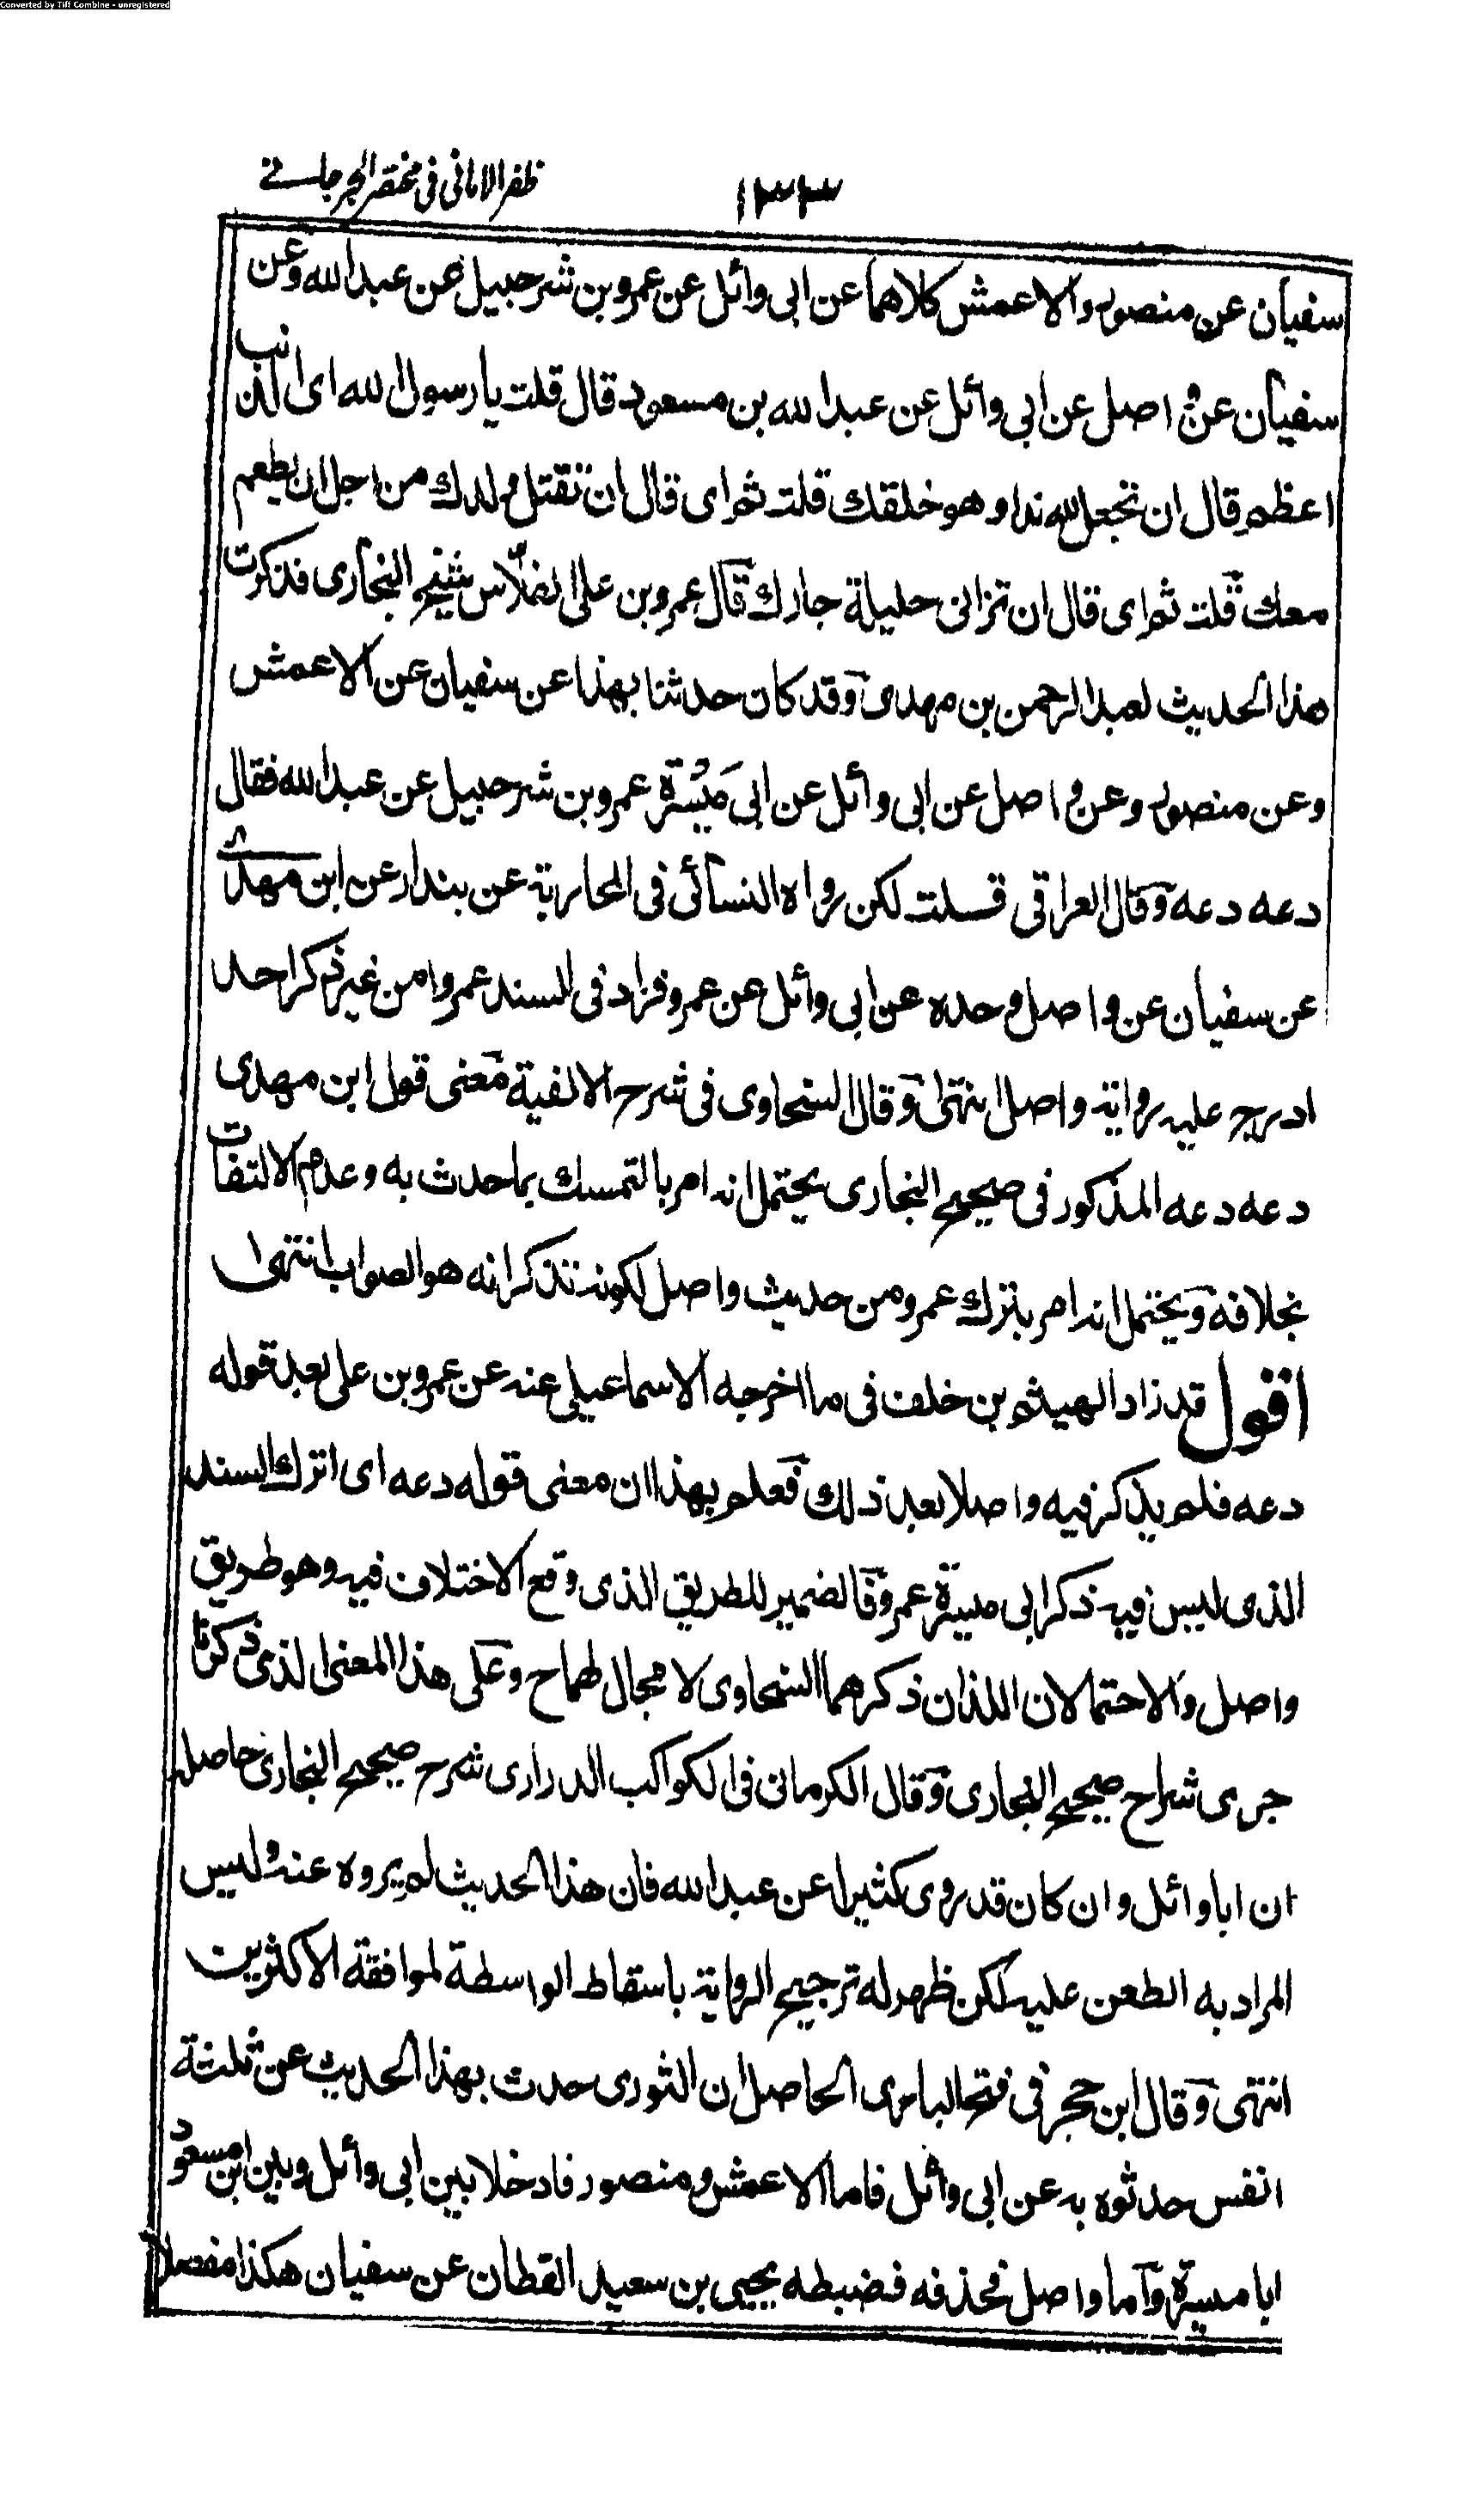 Converted by Tiff Combine - unregistered
ظفر الامانی فی مختصر الجرجانی
١٣٣
سفیان عن منصور والاعمش کلاهما عن ابی وائل عن عمرو بن شرحبیل عن عبد الله وعن
سفیان عن واصل عن ابی وائل عن عبد الله بن مسعود قال قلت یا رسول الله ای الذنب
اعظم قال ان تجعل لله ندا و هو خلقك قلت ثم ای قال ان تقتل ولدك من اجل ان یطعم
معك قلت ثم ای قال ان تزانی حلیلة جارك قال عمرو بن علی الفلاس شیخ البخاری فذکرت
هذا الحدیث لعبد الرحمن بن مهدی وقد کان حدثنا بهذا عن سفیان عن الاعمش
وعن منصور وعن واصل عن ابی وائل عن ابی مَیْسَرة عمرو بن شرحبیل عن عبد الله فقال
دعه دعه وقال العراقی قلت لکن رواه النسائی فی المحاربة عن بندار عن ابن مهدی
عن سفیان عن واصل وحده عن ابی وائل عن عمرو فزاد فی السند عمروا من غیر ذکر احد
ادرج علیه روایة واصل انتهی وقال السخاوی فی شرح الالفیة معنی قول ابن مهدی
دعه دعه المذکور فی صحیح البخاری یحتمل انه امر بالتمسك بما حدث به وعدم الالتفات
بخلافه ویحتمل انه امر بترك عمرو من حدیث واصل لکونه تذکر انه هو الصواب انتهی
اقول قد زاد الهیثم بن خلف فی ما اخرجه الاسماعیلی عنه عن عمرو بن علی بعد قوله
دعه فلم یذکر فیه واصلا بعد ذلك فعلم بهذا ان معنی قوله دعه ای اترك السند
الذی لیس فیه ذکر ابی میسرة عمرو فالضمیر للطریق الذی وقع الاختلاف فیه وهو طریق
واصل والاحتمالان اللذان ذکرهما السخاوی لا مجال لهما ح وعلی هذا المعنی الذی ذکرنا
جری شراح صحیح البخاری وقال الکرمانی فی الکواکب الدراری شرح صحیح البخاری حاصله
ان ابا وائل وان کان قد روی کثیرا عن عبد الله فان هذا الحدیث لم یروه عنه ولیس
المراد به الطعن علیه لکن ظهر له ترجیح الروایة باسقاط الواسطة لموافقة الاکثرین
انتهی وقال ابن حجر فی فتح الباری الحاصل ان الثوری حدث بهذا الحدیث عن ثلثة
انفس حدثوه به عن ابی وائل فاما الاعمش ومنصور فادخلا بین ابی وائل وبین ابن مسعود
ابا میسرة وآما واصل فحذفه فضبطه یحیی بن سعید القطان عن سفیان هکذا مفصلا